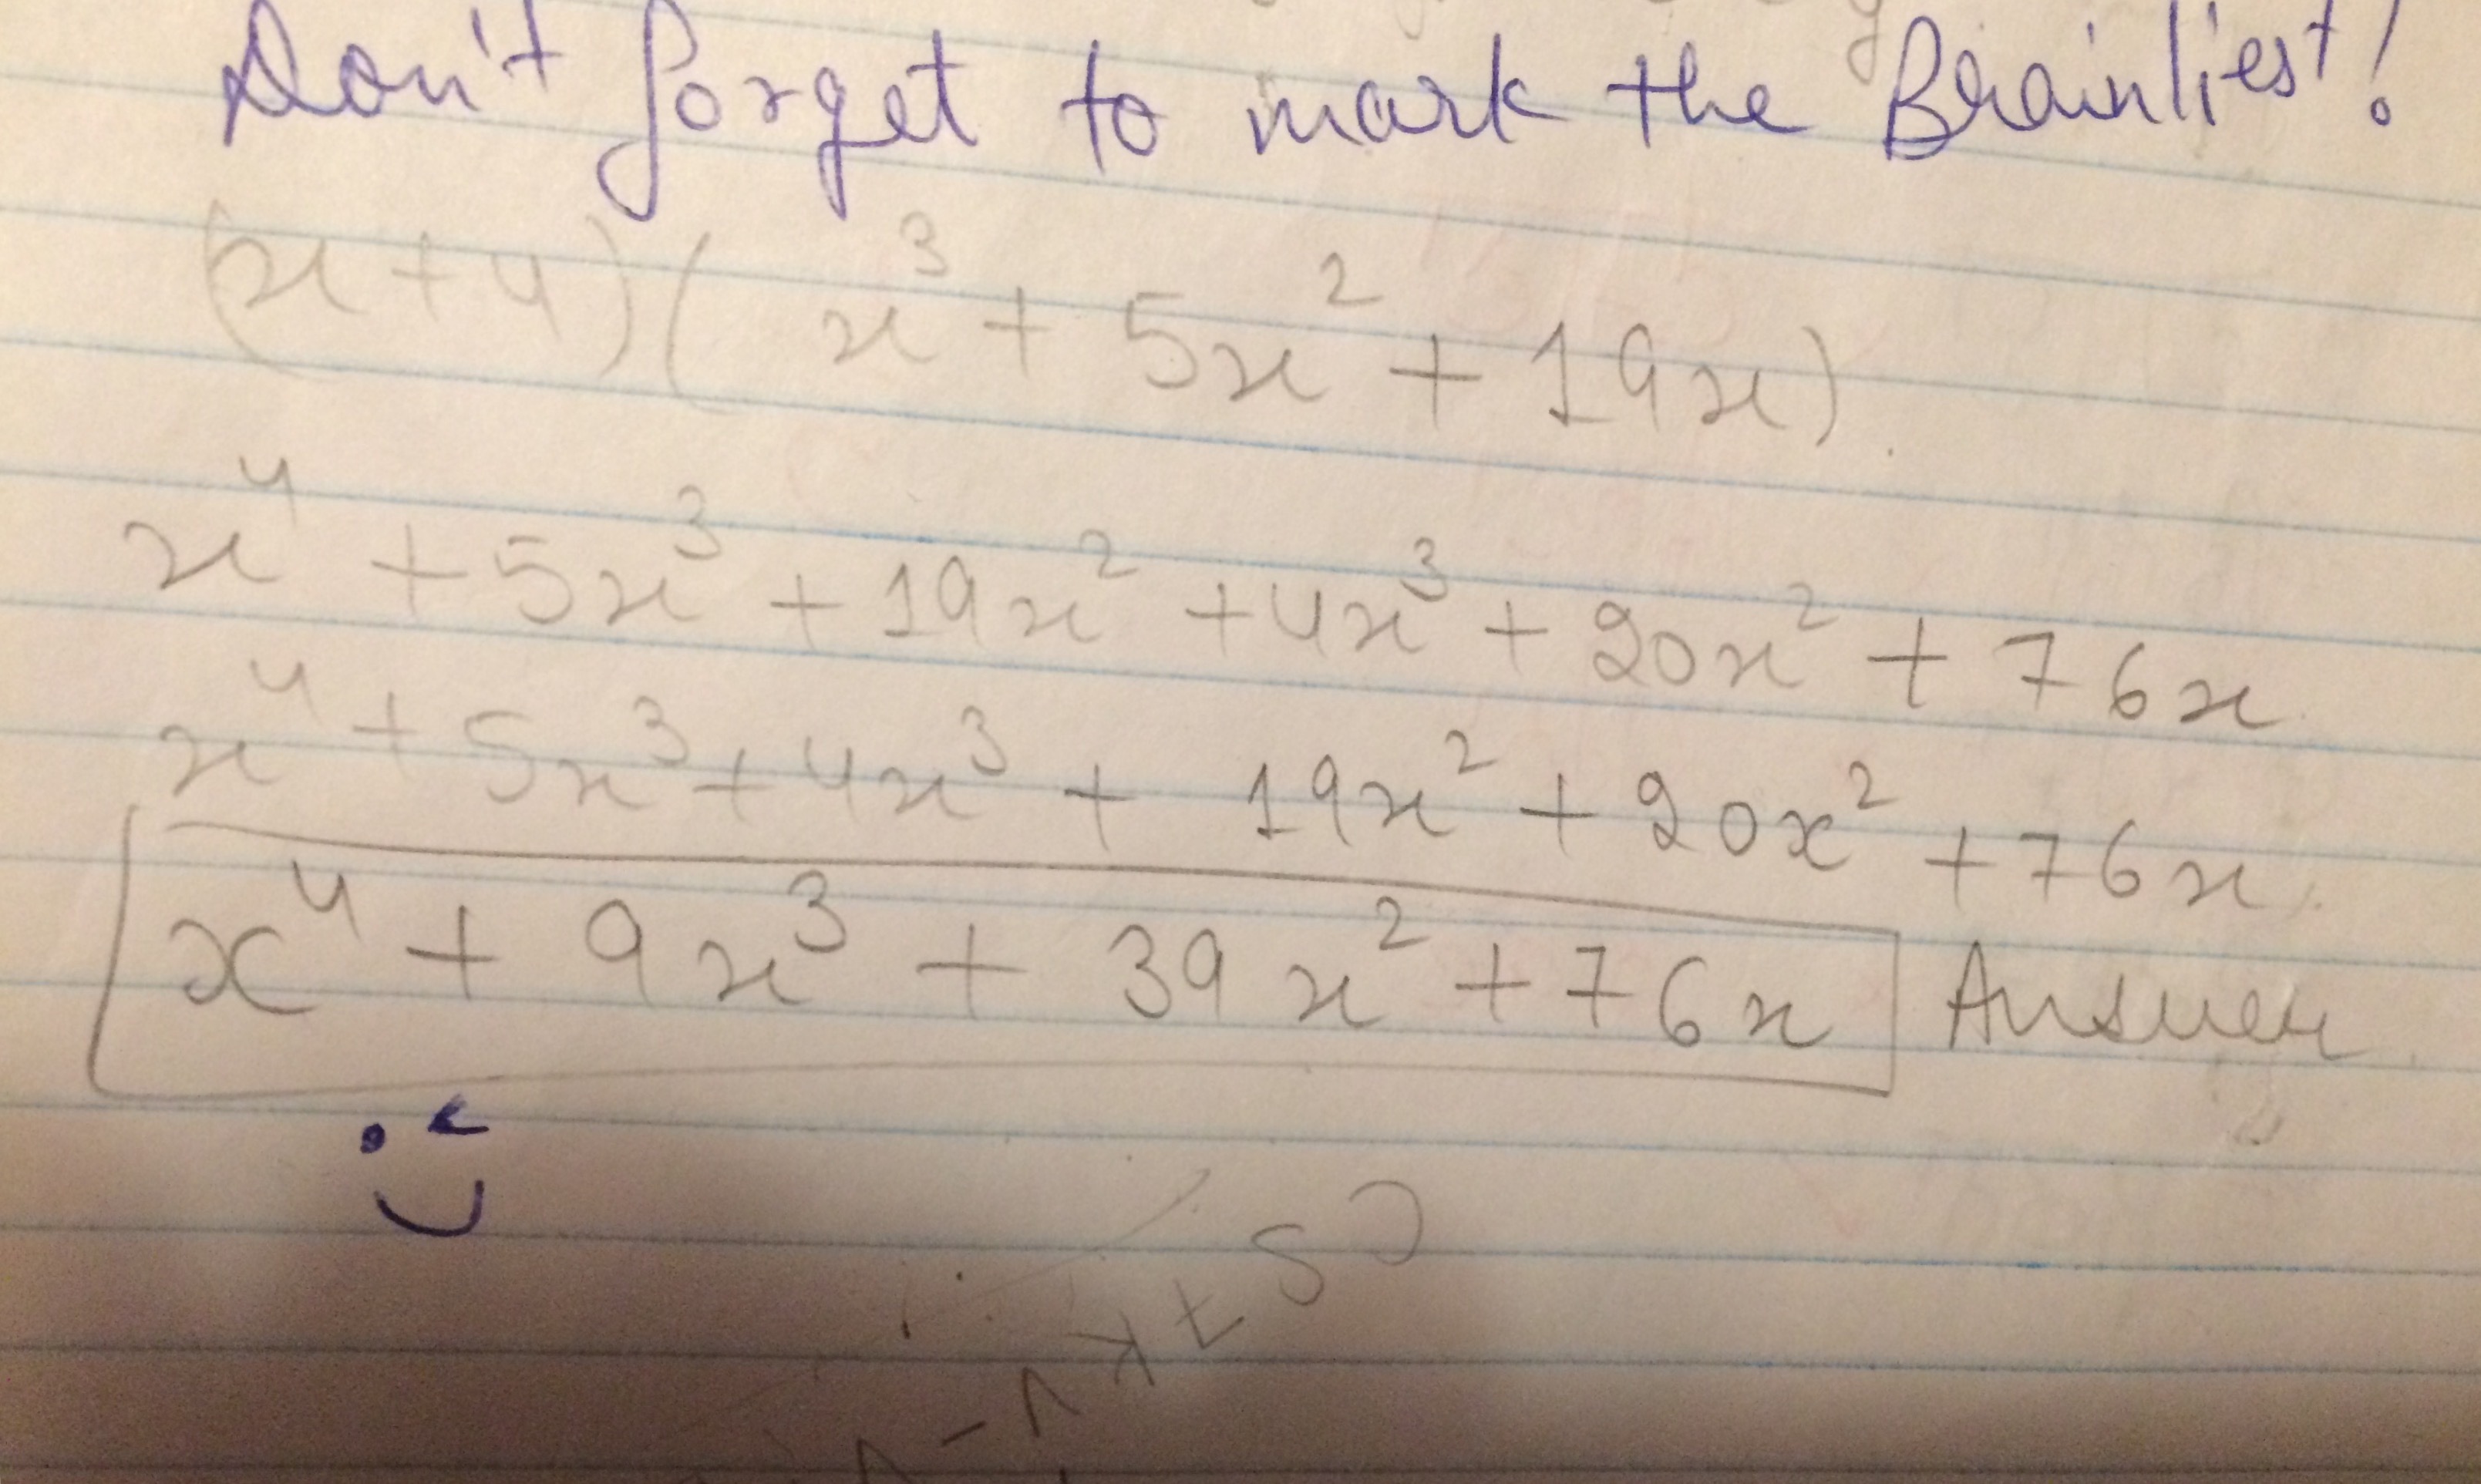 Don't forget to mark the Brainliest!
(x+4)(x³ + 5x² + 19x)
x⁴ + 5x³ + 19x² + 4x³ + 20x² + 76x
x⁴ + 5x³ + 4x³ + 19x² + 20x² + 76x
x⁴ + 9x³ + 39x² + 76x Answer